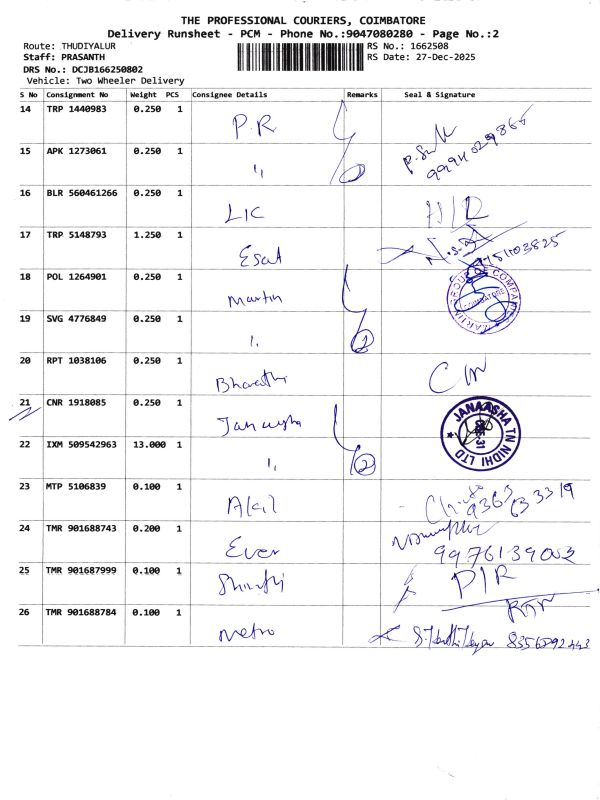 THE PROFESSIONAL COURIERS, COIMBATORE
Delivery Runsheet - PCM - Phone No.:9047080280 - Page No.:2
Route: THUDIYALUR RS No.: 1662508
Staff: PRASANTH RS Date: 27-Dec-2025
DRS No.: DCJB166250802
Vehicle: Two Wheeler Delivery
S No Consignment No Weight PCS Consignee Details Remarks Seal & Signature
14 TRP 1440983 0.250 1 P.R
15 APK 1273061 0.250 1 "
16 BLR 560461266 0.250 1 LIC
17 TRP 5148793 1.250 1 Esat
18 POL 1264901 0.250 1 Martin MARTIN GROUP OF COMPANIES COIMBATORE
19 SVG 4776849 0.250 1 " 2
20 RPT 1038106 0.250 1 Bharathi
21 CNR 1918085 0.250 1 JANAASHA TN NIDHI LTD
22 IXM 509542963 13.000 1 " 2
23 MTP 5106839 0.100 1 Akil
24 TMR 901688743 0.200 1 Ever 9976139003
25 TMR 901687999 0.100 1
26 TMR 901688784 0.100 1 Metro